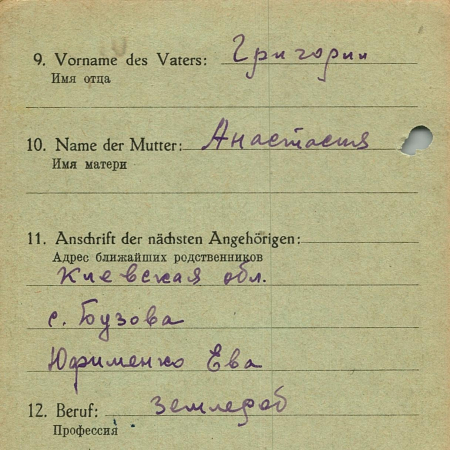 9. Vorname des Vaters: Григорий
Имя отца
10. Name der Mutter: Анастасия
Имя матери
11. Anschrift der nächsten Angehörigen:
Адрес ближайших родственников
Киевская обл.
с. Бузова
Юфименко Ева
12. Beruf: землероб
Профессия